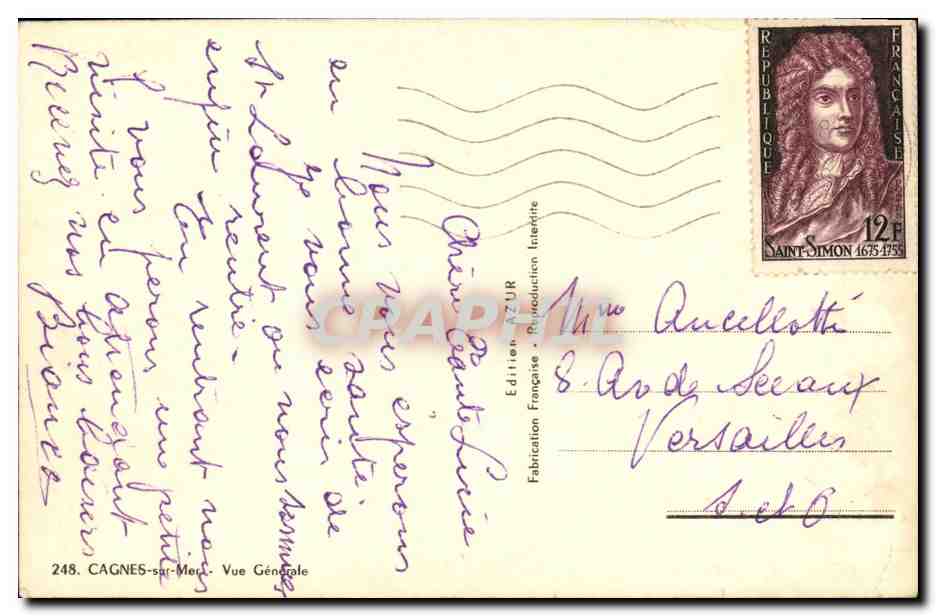 RÉPUBLIQUE FRANÇAISE
12F
SAINT-SIMON 1675-1755
Chère Tante Lucie
Nous vous esperons
en bonne santé.
Je vous ecris de
St Laurent ou nous sommes
enfin rentré.
En rentrant nous
vous ferons une petite
visite en attendant
Recevez nos bons baisers
Mme Ancellotti
8. Av de Sceaux
Versailles
S. et O
Edition AZUR
Fabrication Française - Reproduction Interdite
248. CAGNES-sur-Mer - Vue Générale
CPAPHIL